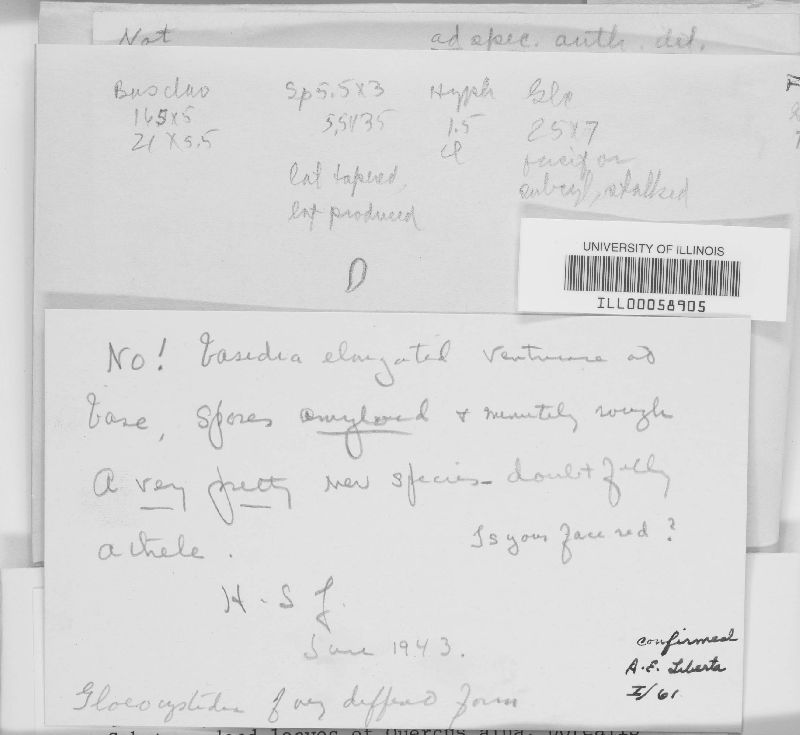 Not ad spec. auth. det.
Basidia Sp 5.5 x 3 Hyph Glo
165 x 5 5,5 x 35 1.5 25 x 7
21 x 5.5 cl fusif or
lat tapered, subcyl, stalked
lat produced
UNIVERSITY OF ILLINOIS
ILL00058905
No! Basidia elongated ventricose at
base, spores amyloid & minutely rough
A very pretty new species - doubtfully
athele. Is your face red?
H. S. J.
June 1943.
confirmed
A.E. Liberta
I/61
Gloeocystidia of very different form
leaves of Quercus alba,